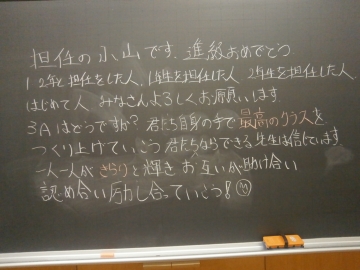 担任の小山です。進級おめでとう。
1 2年と担任をした人、1年生を担任した人 2年生を担任した人
はじめて人 みなさんよろしくお願いします。
3Aはどうですか? 君たち自身の手で最高のクラスを
つくり上げていこう 君たちならできる 先生は信じています
一人一人がきらりと輝き お互いが助け合い
認め合い励し合っていこう!